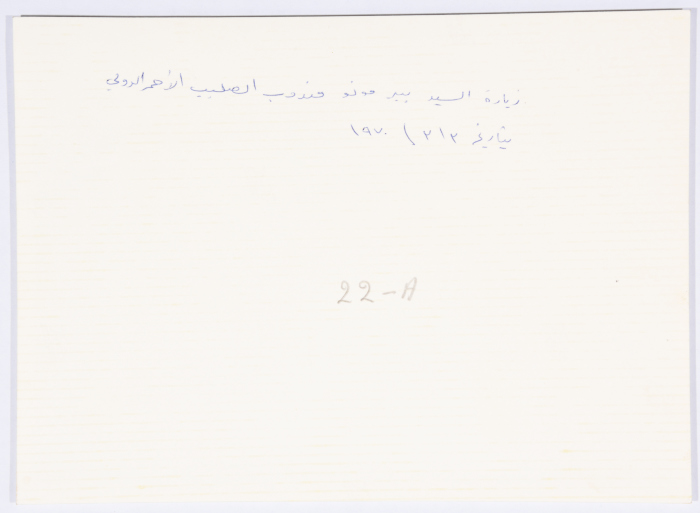 زيارة السيد بيير مونو مندوب الصليب الأحمر الدولي
بتاريخ ٣١٣ / ١٩٧٠
22-A